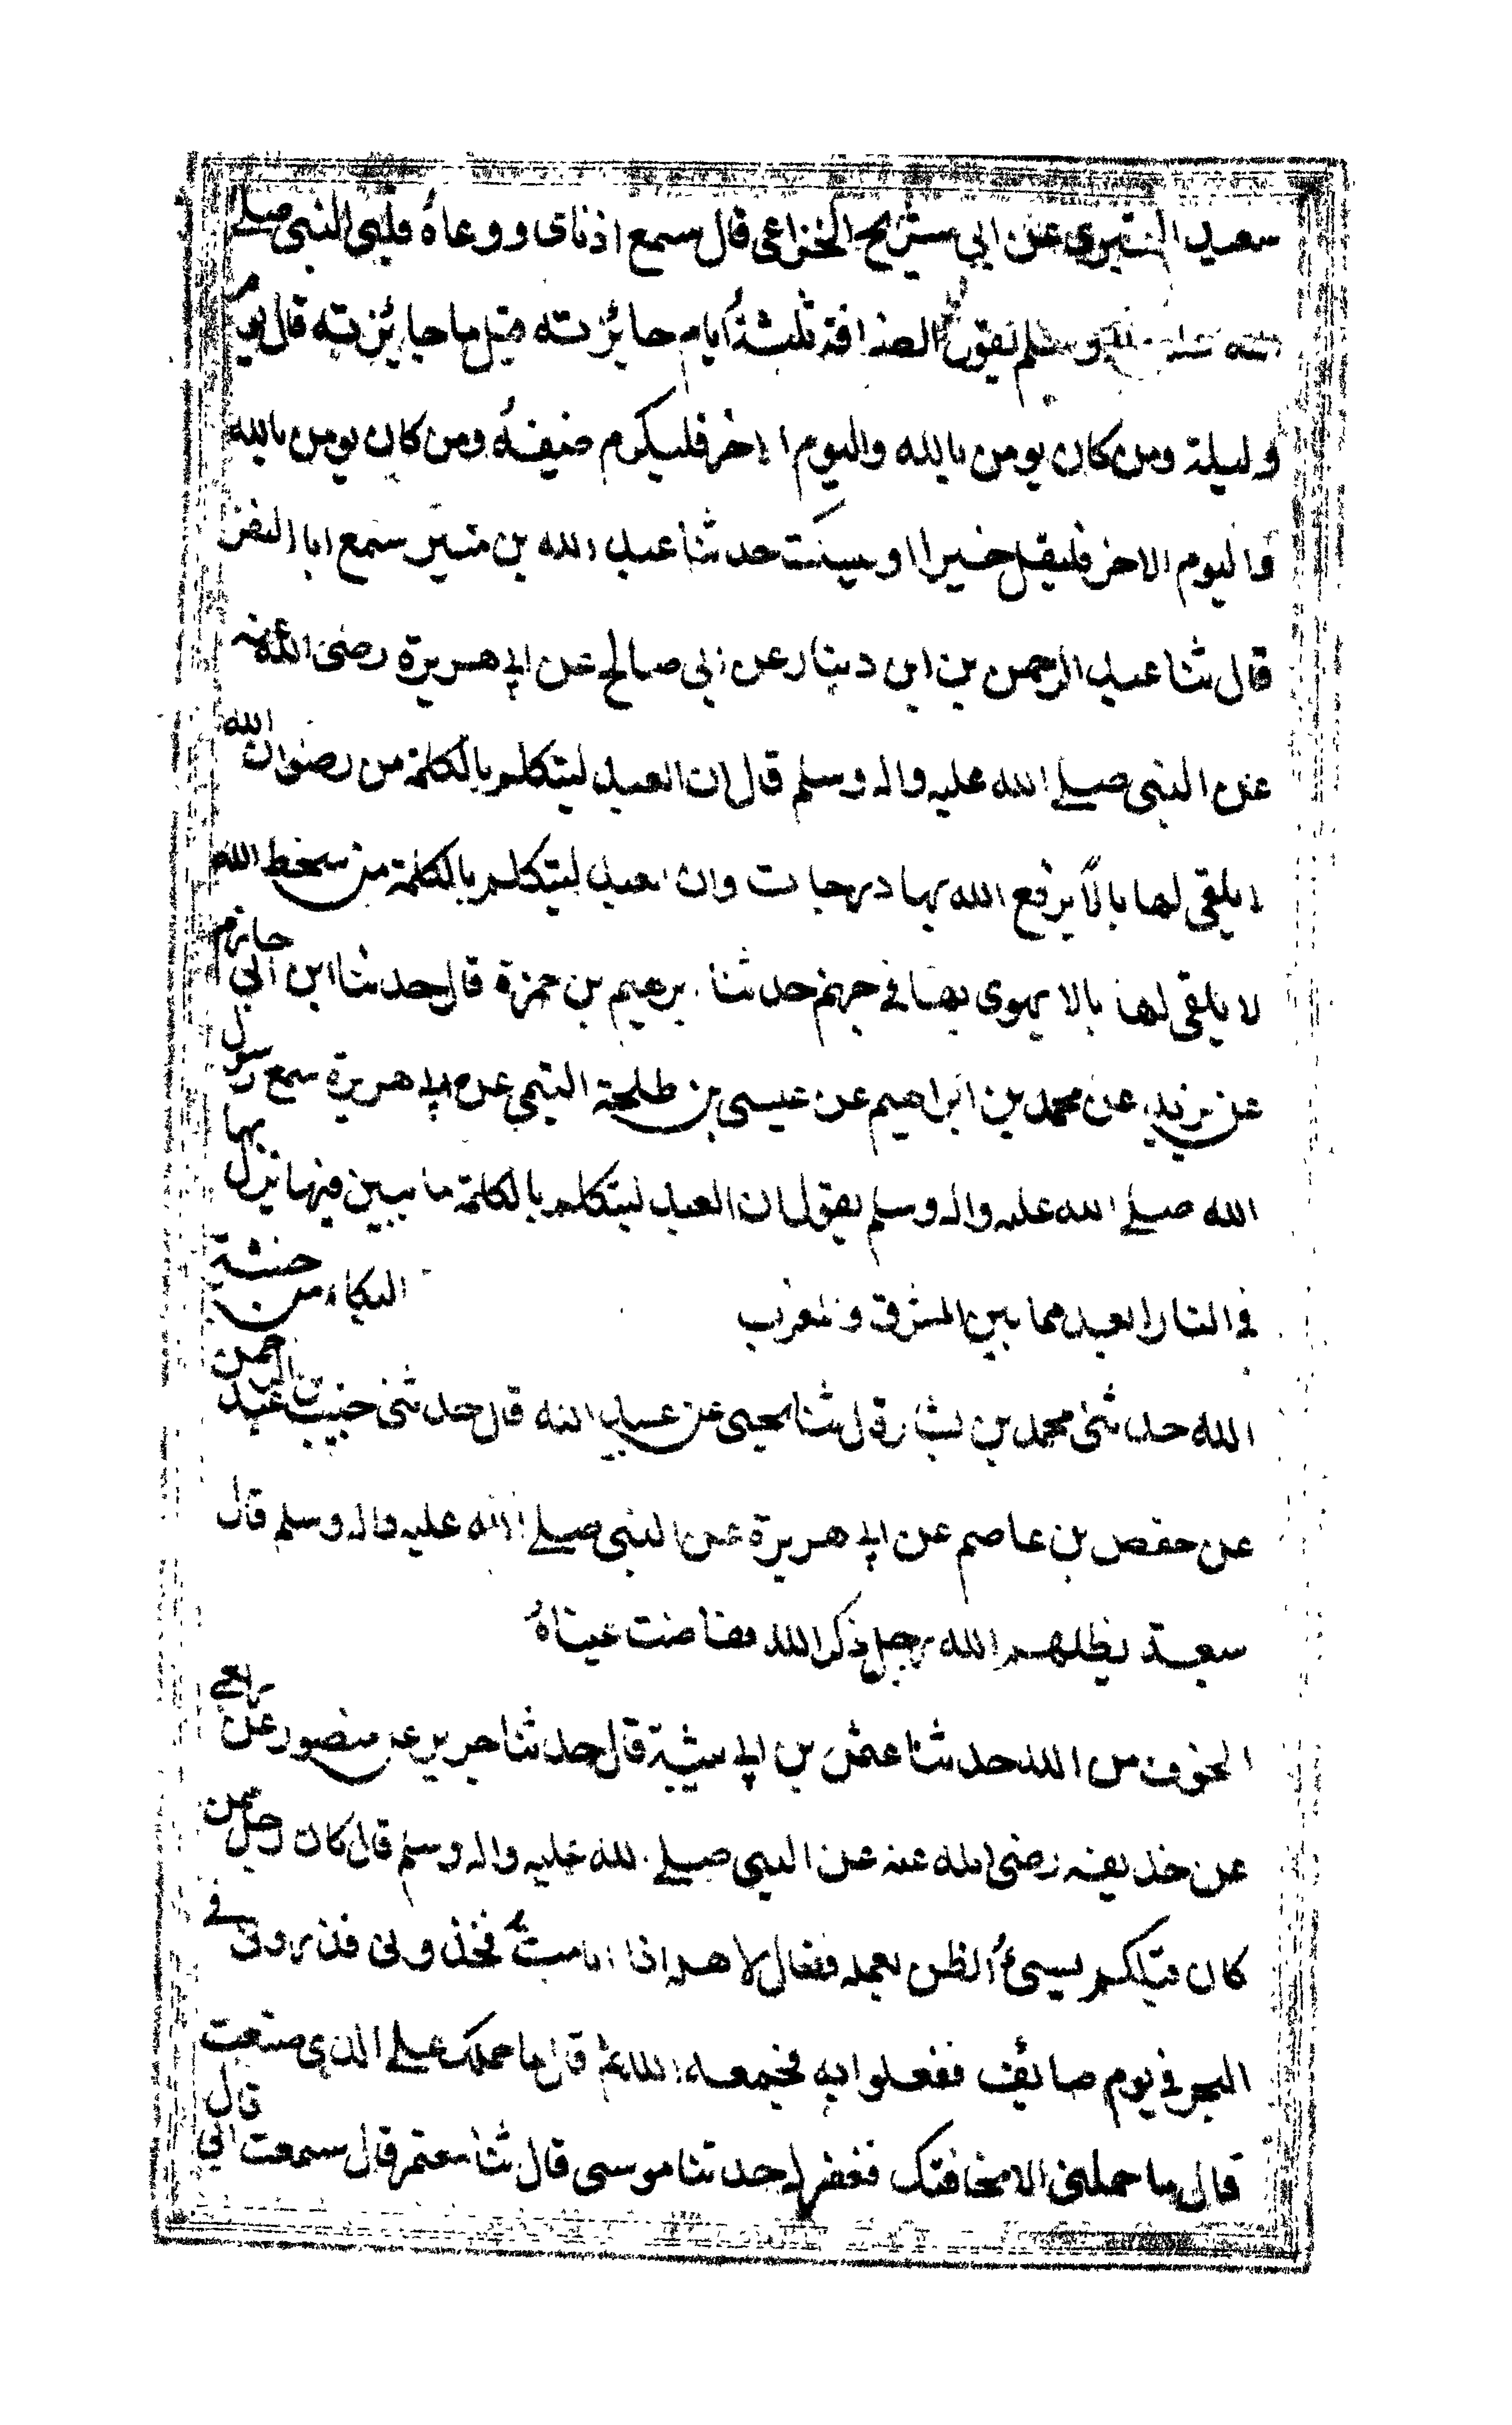 سعيد المقبري عن ابي شريح الخزاعي قال سمع اذناى ووعاهُ قلبي النبي صلے
الله عليه وسلم يقول الضيافة ثلثة ايام جائزته قيل ما جائزته قال يوم
وليلة ومن كان يومن بالله واليوم الاخر فليكرم ضيفهُ ومن كان يومن بالله
واليوم الاخر فليقل خيرا او ليسكت حدثنا عبد الله بن منير سمع ابا النضر
قال ثنا عبد الرحمن بن ابن دينار عن ابي صالح عن ابي هريرة رضى الله عنه
عن النبي صلے الله عليه واله وسلم قال ان العبد ليتكلم بالكلمة من رضوان الله
لا يلقي لها بالاً يرفع الله بها درجات وان العبد ليتكلم بالكلمة من سخط الله
لا يلقي لها بالا يهوى بها في جهنم حدثنا ابرهيم بن حمزة قال حدثنا ابن ابي حازم
عن يزيد عن محمد بن ابراهيم عن عيسى بن طلحة التيمي عن ابي هريرة سمع رسول
الله صلے الله عليه واله وسلم يقول ان العبد ليتكلم بالكلمة ما يتبين فيها يزل بها
في النار ابعد مما بين المشرق والمغرب البكاء من خشية
الله حدثنى محمد بن بشار قال ثنا يحيى عن عبيد الله قال حدثنى خبيب بن عبد الرحمن
عن حفص بن عاصم عن ابي هريرة عن النبي صلے الله عليه واله وسلم قال
سبعة يظلهم الله رجل ذكر الله ففاضت عيناهُ
الخوف من الله حدثنا عثمن بن ابي شيبة قال حدثنا جرير عن منصور عن ربعي
عن حذيفة رضى الله عنه عن النبي صلے الله عليه واله وسلم قال كان رجل ممن
كان قبلكم يسيئُ الظن بعمله فقال لاهله اذا انا متُّ فخذوني فذروني في
البحر في يوم صائف ففعلوا به فجمعه الله ثم قال ما حملك علے الذي صنعت
قال ما حملني الا مخافتك فغفر له حدثنا موسى قال ثنا معتمر قال سمعت ابي قال